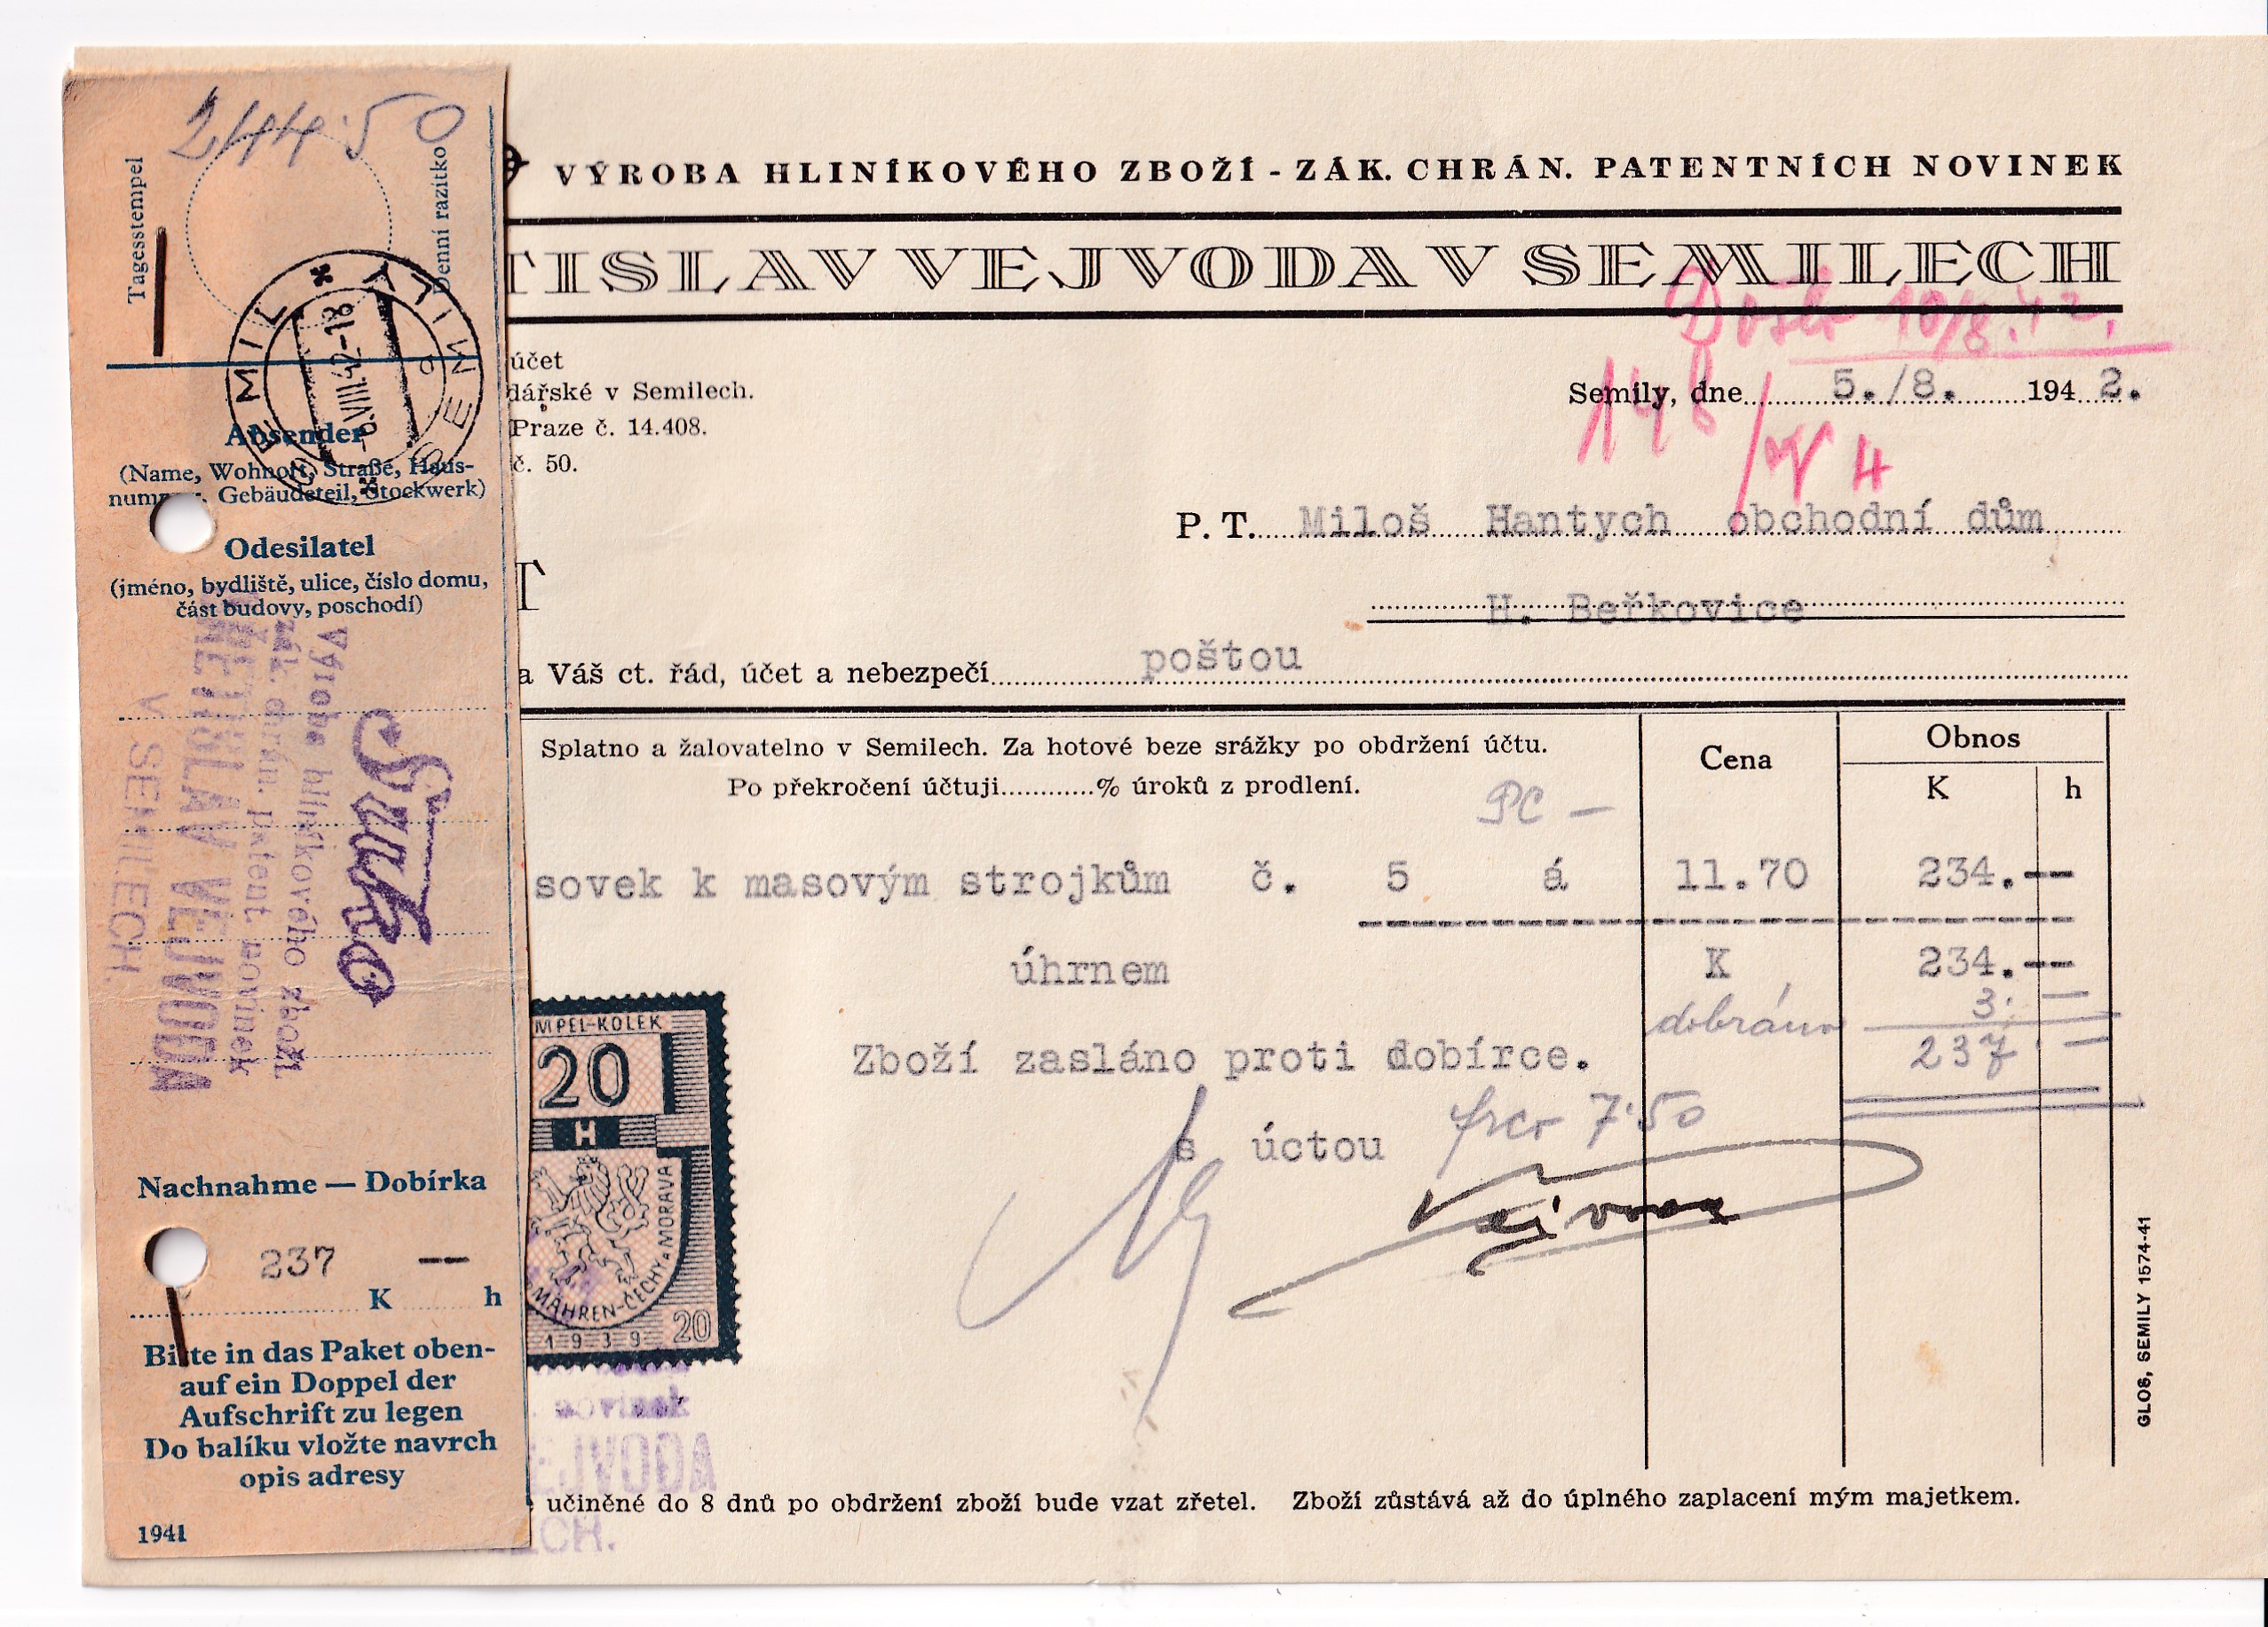 244·50
Tagesstempel
Denní razítko
SEMIL
SEMILY
6.VIII.42-18
Absender
(Name, Wohnort, Straße, Haus-
nummer, Gebäudeteil, Stockwerk)
Odesilatel
(jméno, bydliště, ulice, číslo domu,
část budovy, poschodí)
Výroba hliníkového zboží
zák. chrán. Patent novinek
VEJVODA
V SEMILECH.
Nachnahme — Dobírka
237 —
K h
Bitte in das Paket oben-
auf ein Doppel der
Aufschrift zu legen
Do balíku vložte navrch
opis adresy
1941
VÝROBA HLINÍKOVÉHO ZBOŽÍ - ZÁK. CHRÁN. PATENTNÍCH NOVINEK
TISLAV VEJVODA V SEMILECH
Došlo 10/8.42.
účet
dářské v Semilech.
Praze č. 14.408.
č. 50.
Semily, dne 5./8. 194 2.
148/ 4
P. T. Miloš Hantych obchodní dům
H. Beřkovice
T
a Váš ct. řád, účet a nebezpečí poštou
Splatno a žalovatelno v Semilech. Za hotové beze srážky po obdržení účtu.
Po překročení účtuji............% úroků z prodlení.
Cena
Obnos
K h
PC —
sovek k masovým strojkům č. 5 á 11.70 234.--
úhrnem K 234.--
3. —
237 —
Zboží zasláno proti dobírce.
s úctou
7·50
Vejvoda
MPEL-KOLEK
20
H
MÄHREN-ČECHY A MORAVA
1939
20
novinek
EJVODA
ECH.
učiněné do 8 dnů po obdržení zboží bude vzat zřetel. Zboží zůstává až do úplného zaplacení mým majetkem.
GLOS, SEMILY 1574-41